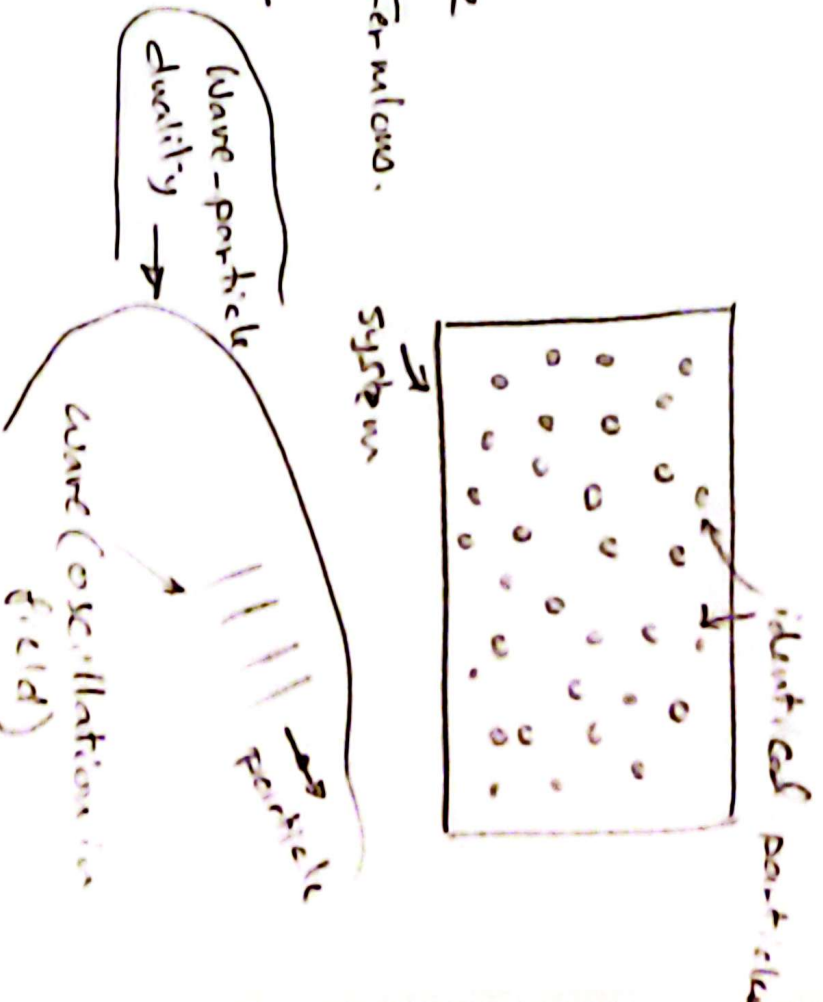 identical particle
system
fermions.
Wave-particle
duality
particle
wave (oscillation in
field)